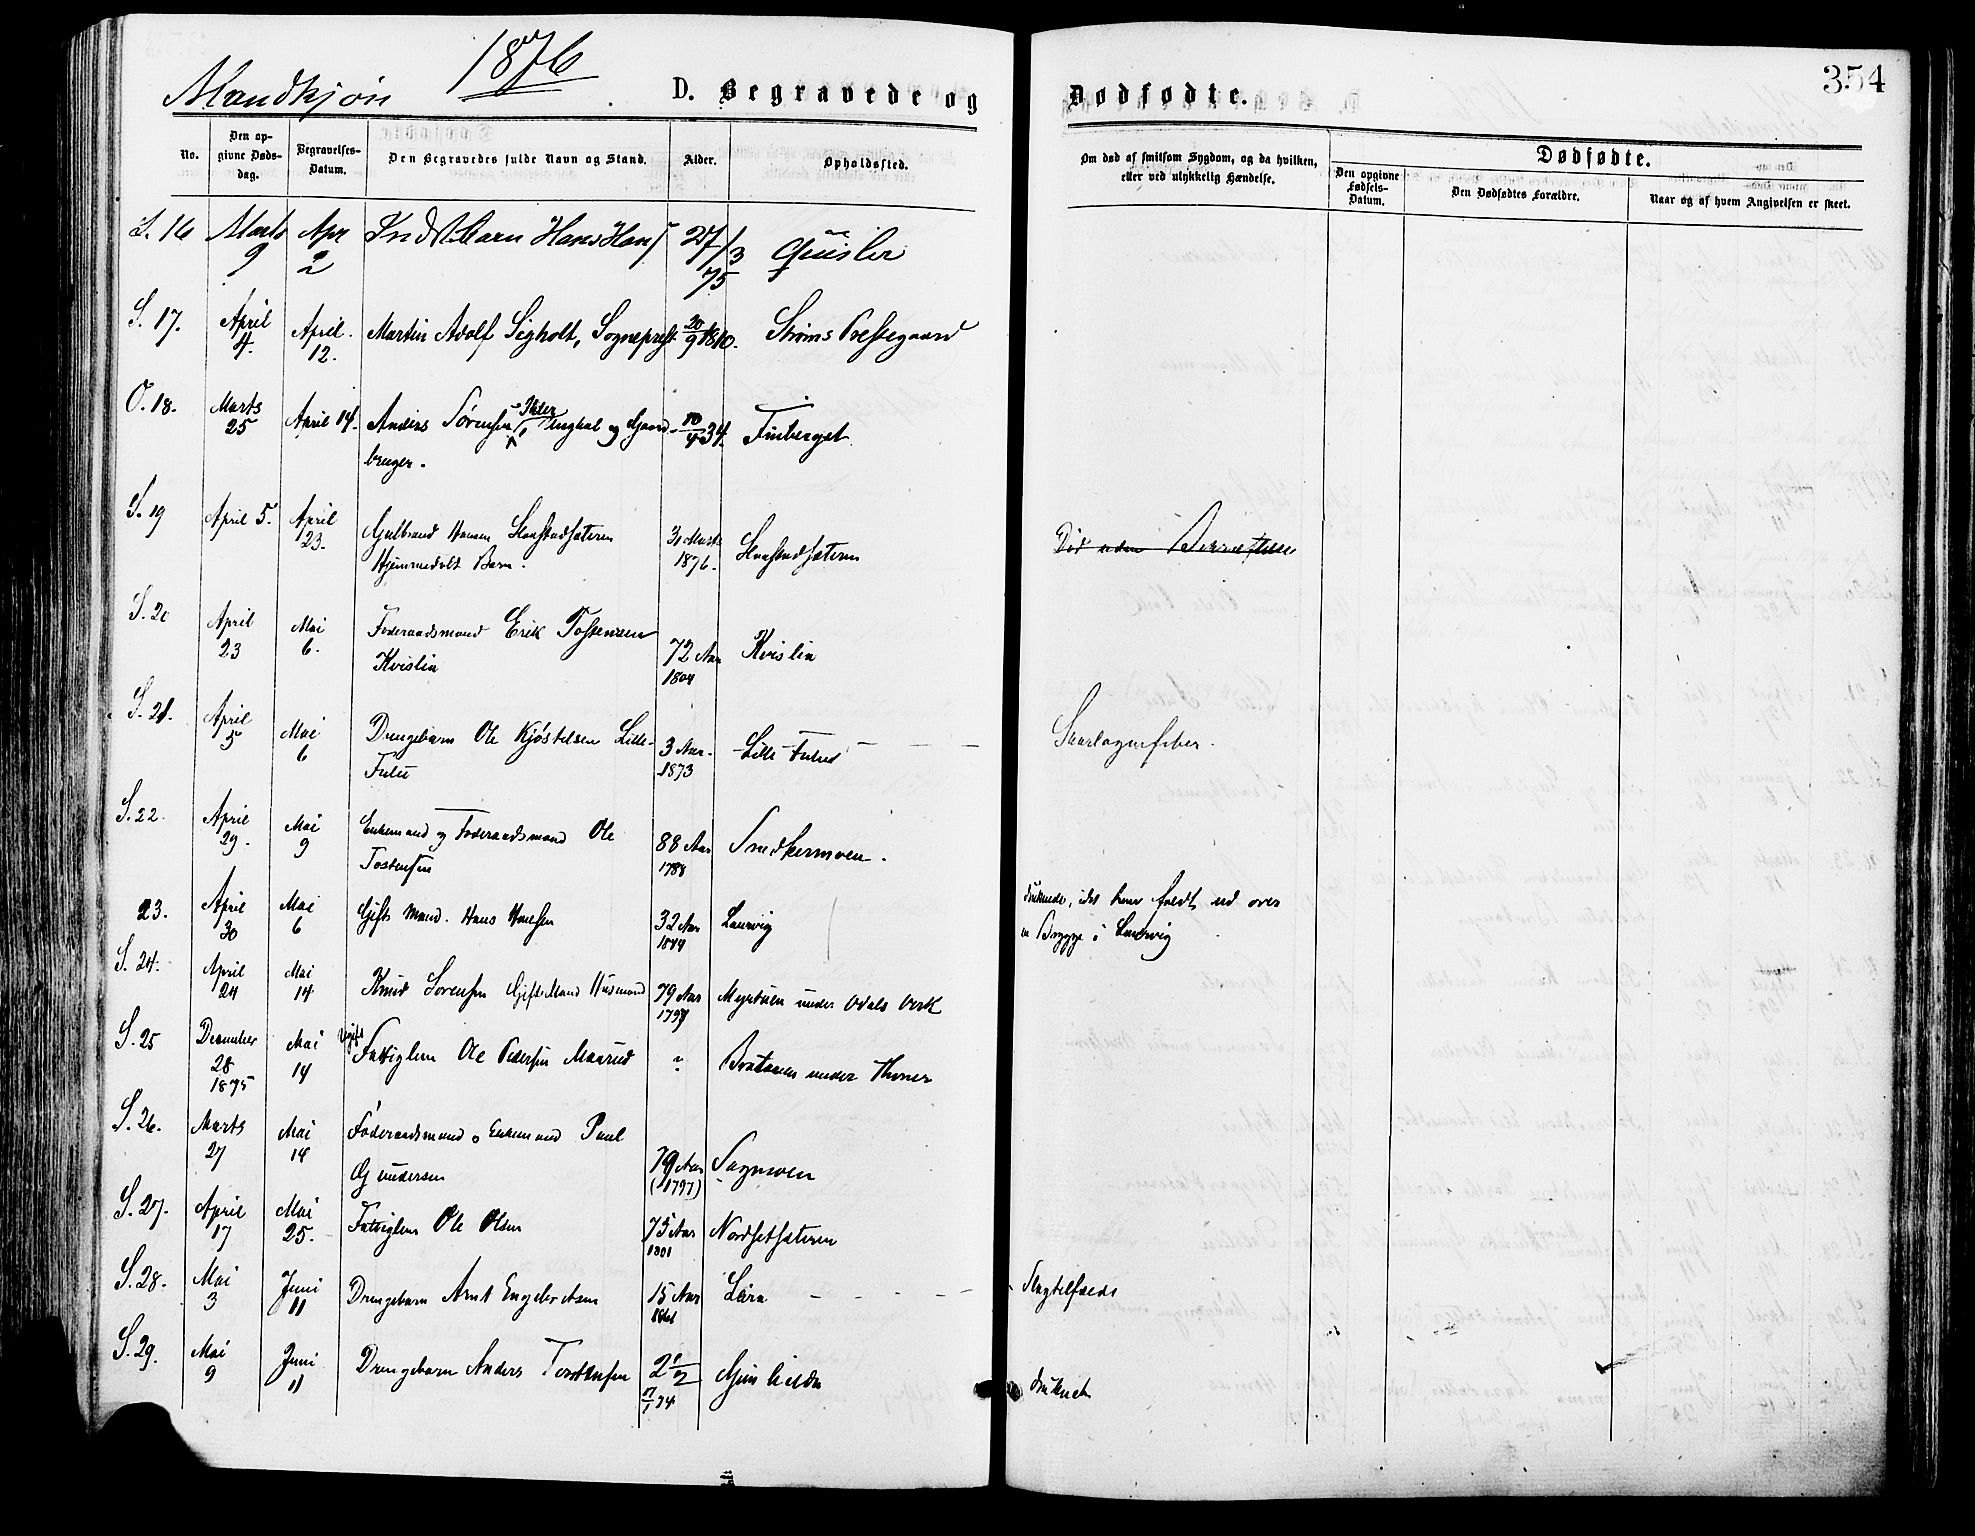 Mandkjøn 1876 D. Begravede og Dødfødte. 354
No. Den opgivne Døds-dag. Begravelses-Datum. Den Begravedes fulde Navn og Stand. Alder. Opholdssted. Om død af smitsom Sygdom, og da hvilken, eller ved ulykkelig Hændelse. Dødfødte. Den opgivne Fødsels-Datum. Den Dødfødtes Forældre. Naar og af hvem Angivelsen er skeet.
S. 16 Marts 9 Apr 2 Hans Hans 27/3 75
S. 17. April 4. April. 12. Martin Adolf Sigholt, Sogneprest 20/9 1810. Strøms Prestegaard
O. 18. Marts 25 April 14. Anders Sørensen og Gaard-
bruger. 10/4 34. Finberget
S. 19 April 5. April 23. Gulbrand Hansen
Hjemmedøbt Barn. 31 Marts 1876. Død uden
S. 20 April 23 Mai 6. Føderaadsmand Erik Tostensen
Kvislia 72 Aar 1804 Kvislia
S. 21. April 5 Mai 6 Drengebarn Ole Kjøstelsen Lille-
Fulu 3 Aar. 1873 Lille Fulu Skarlagnsfeber.
S. 22. April 29. Mai 9 Enkemand og Føderaadsmand Ole
Tostensen 88 Aar 1788 Snedkermoen.
23. April 30 Mai 6 Gift Mand. Hans Hansen 32 Aar 1844 Laurvig druknede, idet han faldt ud over
en Brygge i Laurvig
S. 24. April 24 Mai 14 Knud Sørensen Gift Mand Husmand 79 Aar 1797 under Odals Verk
S. 25 December 28 1875 Mai 14 Ugift Fattiglem Ole Pedersen Maarud ? Brataaen under
S. 26. Marts 27 Mai 14 Føderaadsmand o Enkemand Paul
Gundersen 79 Aar (1797) Sagmoen
S. 27. April 17 Mai 25. Fattiglem Ole Olsen 75 Aar 1801 Nordsetsæteren
S. 28. Mai 3 Juni 11 Drengebarn Arnt 15 Aar 1861
S. 29. Mai 9 Juni 11 Drengebarn Anders Torstensen 2 1/2 17/1 74 druknet